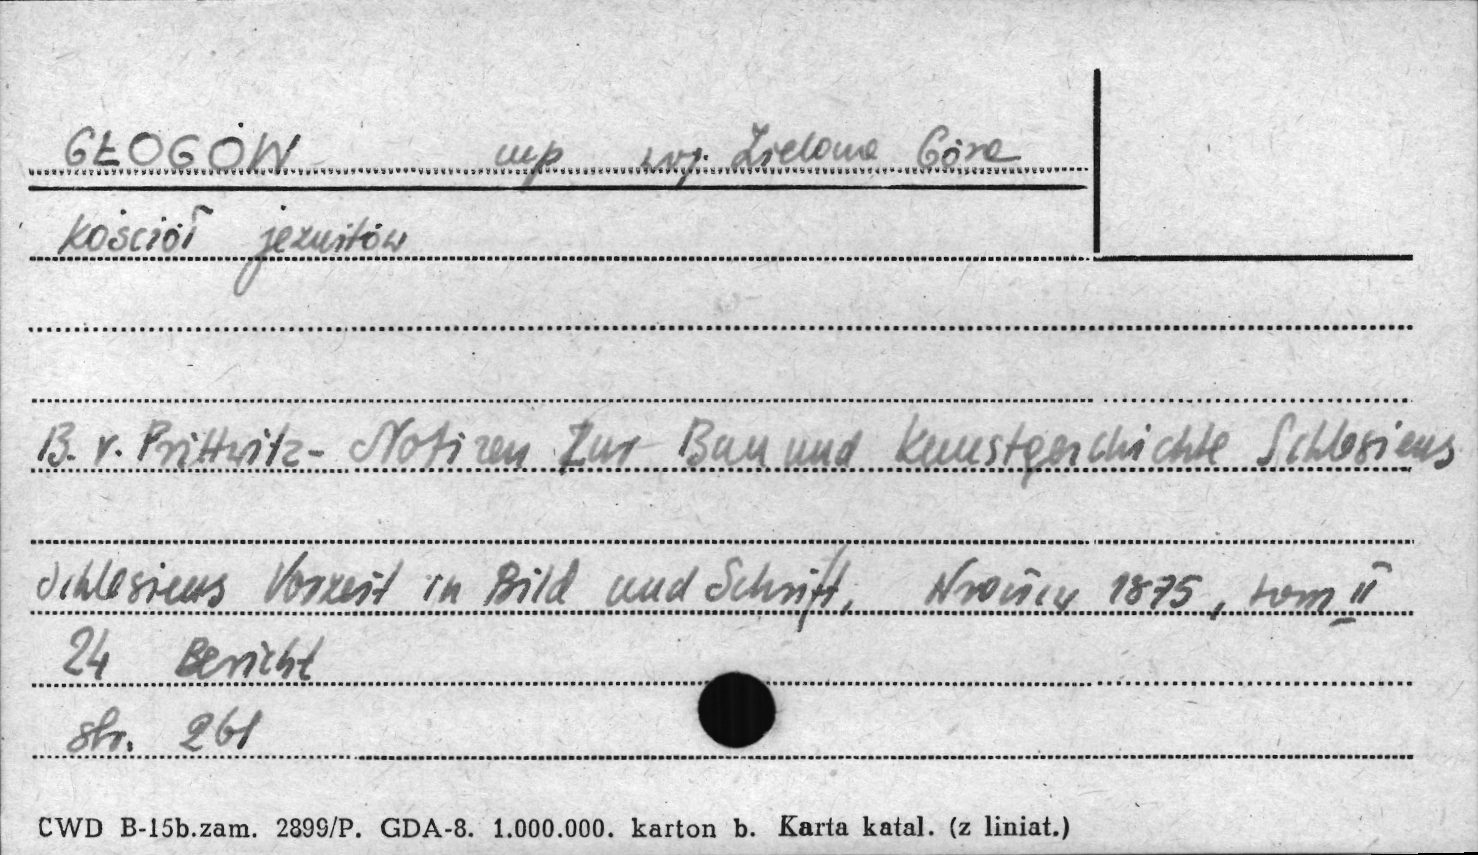 GŁOGÓW mp woj. Zielona Góra
kościół jezuitów
B. v. Prittwitz - Notizen Zur Bau und Kunstgeschichte Schlesiens
Schlesiens Vorzeit in Bild und Schrift, 1875, tom II
24 Bericht
str. 261
CWD B-15b.zam. 2899/P. GDA-8. 1.000.000. karton b. Karta katal. (z liniat.)